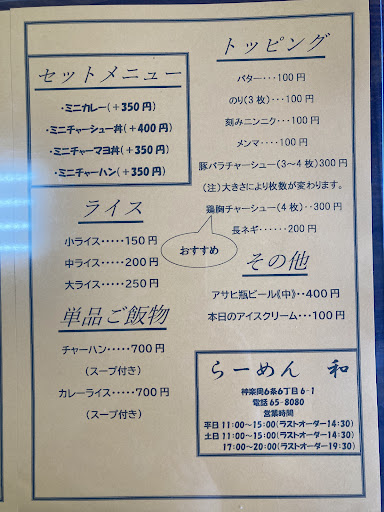 セットメニュー
・ミニカレー(+350円)
・ミニチャーシュー丼(+400円)
・ミニチャーマヨ丼(+350円)
・ミニチャーハン(+350円)
ライス
小ライス・・・・・150円
中ライス・・・・・200円
大ライス・・・・・250円
単品ご飯物
チャーハン・・・・・700円
(スープ付き)
カレーライス・・・・・700円
(スープ付き)
トッピング
バター・・・100円
のり(3枚)・・・100円
刻みニンニク・・・100円
メンマ・・・・100円
豚バラチャーシュー(3~4枚)300円
(注)大きさにより枚数が変わります。
鶏胸チャーシュー(4枚)・・300円
おすすめ
長ネギ・・・・・・200円
その他
アサヒ瓶ビール《中》・・400円
本日のアイスクリーム・・・100円
らーめん 和
神楽岡6条6丁目6-1
電話65-8080
営業時間
平日11:00~15:00(ラストオーダー14:30)
土日11:00~15:00(ラストオーダー14:30)
17:00~20:00(ラストオーダー19:30)